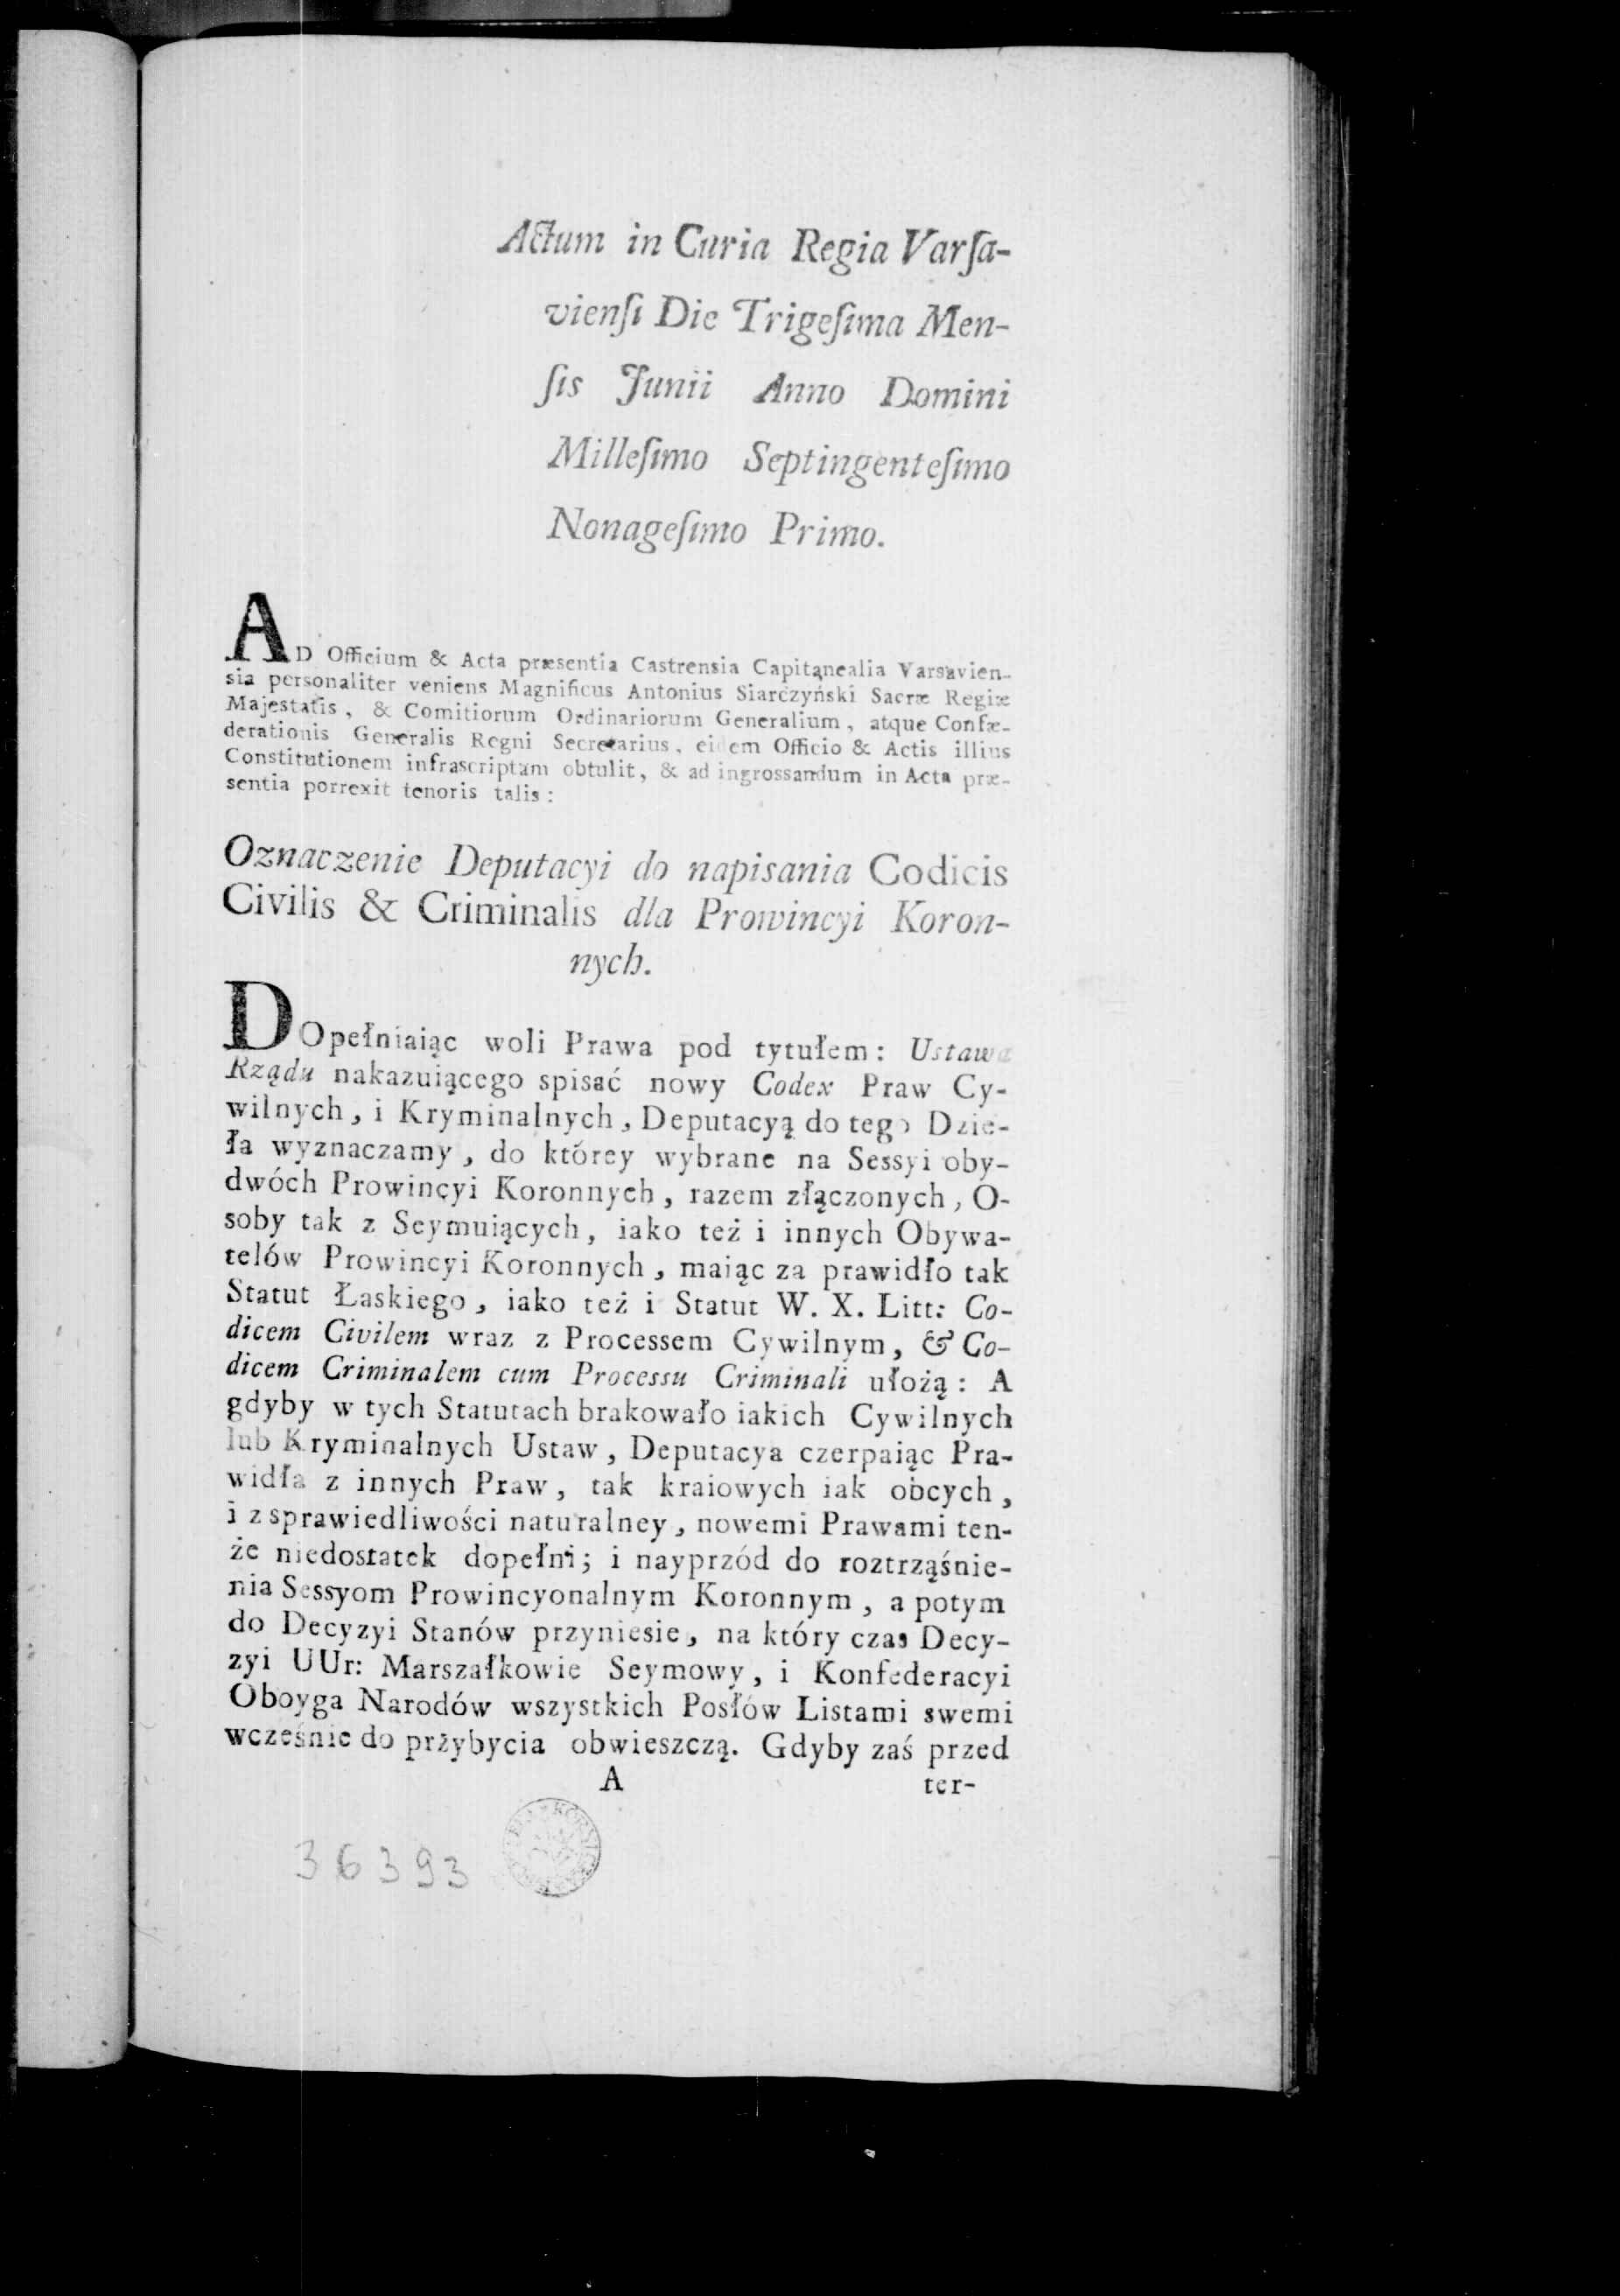 Actum in Curia Regia Varſa-
vienſi Die Trigeſima Men-
ſis Junii Anno Domini
Milleſimo Septingenteſimo
Nonageſimo Primo.
AD Officium & Acta præsentia Castrensia Capitanealia Varsavien-
sia personaliter veniens Magnificus Antonius Siarczyński Sacræ Regiæ
Majestatis, & Comitiorum Ordinariorum Generalium, atque Confæ-
derationis Generalis Regni Secretarius, eidem Officio & Actis illius
Constitutionem infrascriptam obtulit, & ad ingrossandum in Acta præ-
sentia porrexit tenoris talis:
Oznaczenie Deputacyi do napisania Codicis
Civilis & Criminalis dla Prowincyi Koron-
nych.
DOpełniaiąc woli Prawa pod tytułem: Ustawa
Rządu nakazuiącego spisać nowy Codex Praw Cy-
wilnych, i Kryminalnych, Deputacyą do tego Dzie-
ła wyznaczamy, do którey wybrane na Sessyi oby-
dwóch Prowincyi Koronnych, razem złączonych, O-
soby tak z Seymuiących, iako też i innych Obywa-
telów Prowincyi Koronnych, maiąc za prawidło tak
Statut Łaskiego, iako też i Statut W. X. Litt: Co-
dicem Civilem wraz z Processem Cywilnym, & Co-
dicem Criminalem cum Processu Criminali ułożą: A
gdyby w tych Statutach brakowało iakich Cywilnych
lub Kryminalnych Ustaw, Deputacya czerpaiąc Pra-
widła z innych Praw, tak kraiowych iak obcych,
i z sprawiedliwości naturalney, nowemi Prawami ten-
że niedostatek dopełni; i nayprzód do roztrząśnie-
nia Sessyom Prowincyonalnym Koronnym, a potym
do Decyzyi Stanów przyniesie, na który czas Decy-
zyi UUr: Marszałkowie Seymowy, i Konfederacyi
Oboyga Narodów wszystkich Posłów Listami swemi
wcześnie do przybycia obwieszczą. Gdyby zaś przed
A ter-
36393